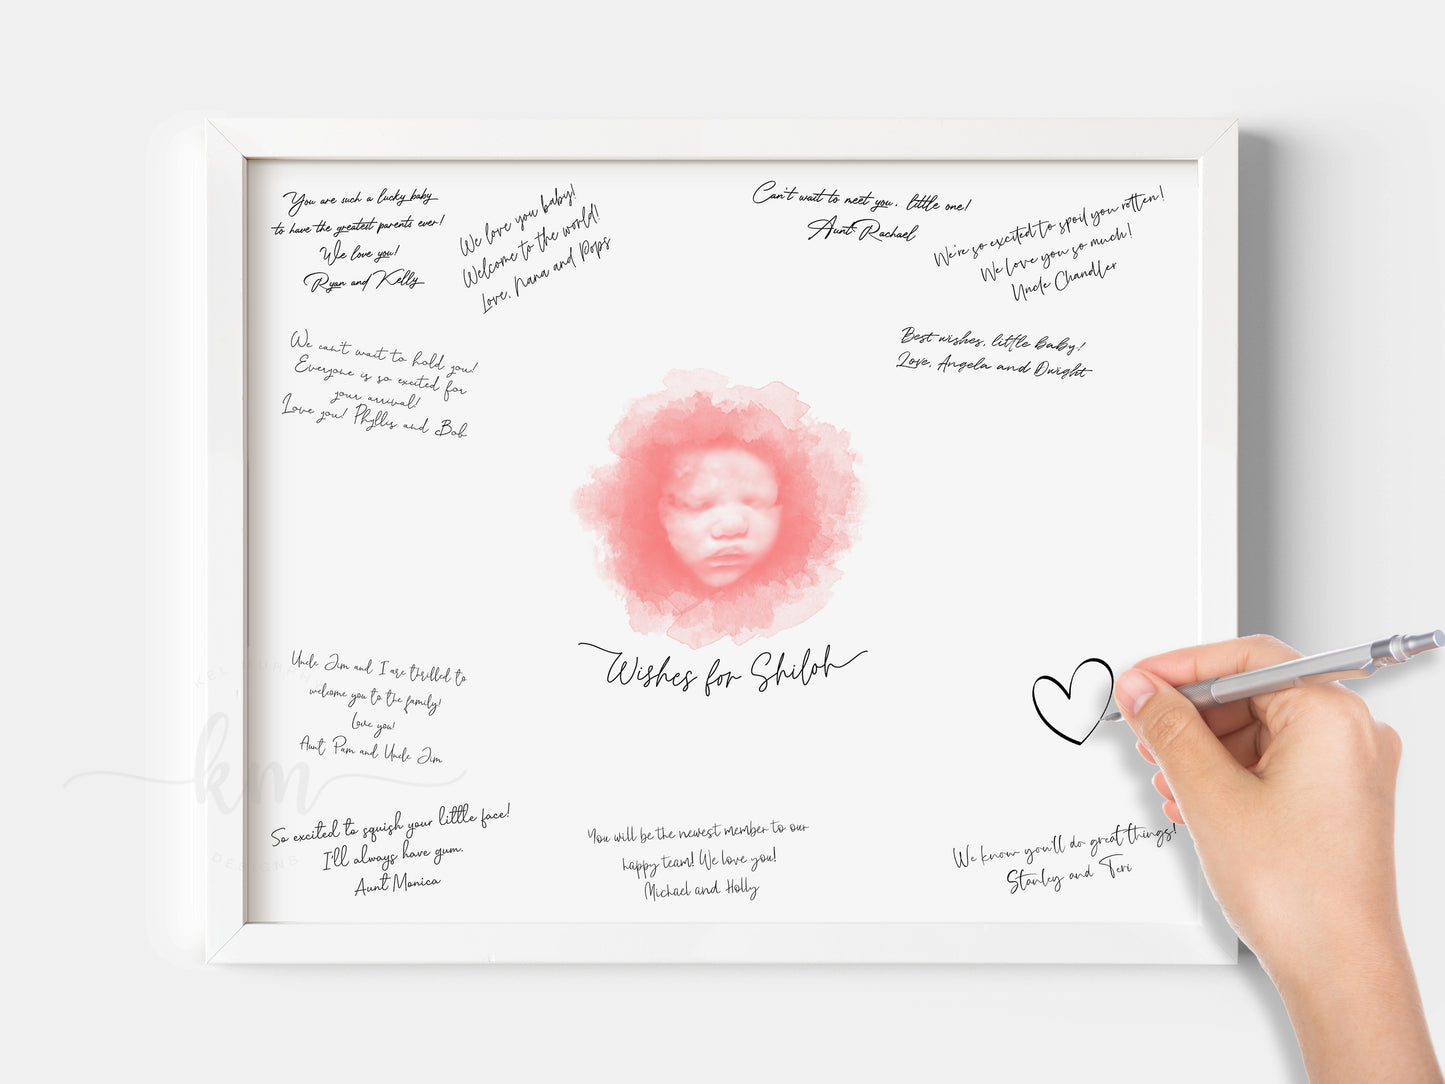 You are such a lucky baby
to have the greatest parents ever!
We love you!
Ryan and Kelly
We love you baby!
Welcome to the world!
Love, Nana and Pops
Can't wait to meet you, little one!
Aunt Rachael
We're so excited to spoil you rotten!
We love you so much!
Uncle Chandler
We can't wait to hold you!
Everyone is so excited for
your arrival!
Love you! Phyllis and Bob
Best wishes, little baby!
Love, Angela and Dwight
Wishes for Shiloh
Uncle Jim and I are thrilled to
welcome you to the family!
Love you!
Aunt Pam and Uncle Jim
KEL MURPHY
km
DESIGNS
So excited to squish your little face!
I'll always have gum.
Aunt Monica
You will be the newest member to our
happy team! We love you!
Michael and Holly
We know you'll do great things!
Stanley and Teri